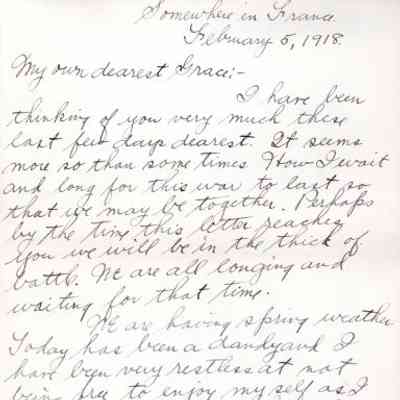 Somewhere in France.
February 5, 1918.
My own dearest Grace;-
I have been
thinking of you very much these
last few days dearest. It seems
more so than some times. How I wait
and long for this war to last so
that we may be together. Perhaps
by the time this letter reaches
you we will be in the thick of
battle. We are all longing and
waiting for that time.
We are having spring weather.
Today has been a dandy and I
have been very restless at not
being free to enjoy my self as I